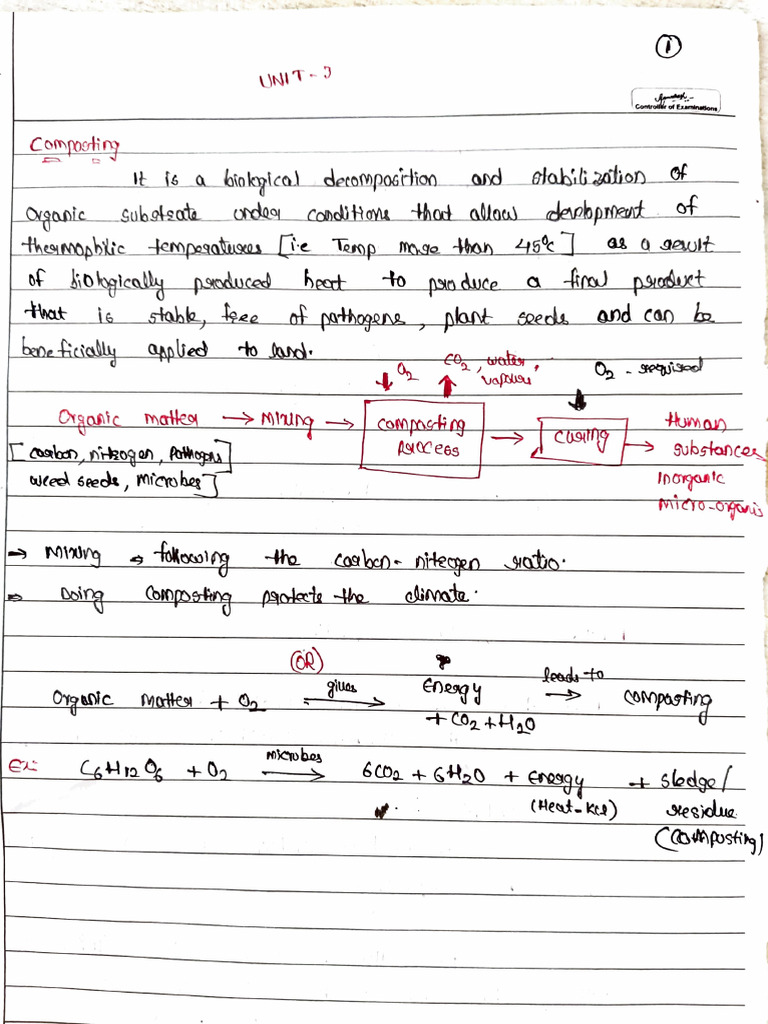 1
UNIT - 3
Controller of Examinations
Composting
It is a biological decomposition and stabilization of
organic substrate under conditions that allow development of
thermophilic temperatures [i.e Temp more than 45°c] as a result
of biologically produced heat to produce a final product
that is stable, free of pathogens, plant seeds and can be
beneficially applied to land.
O2 CO2, water, vapours O2 - required
Organic matter → mixing → composting process → curing → Human substances
[carbon, nitrogen, pathogens
weed seeds, microbes]
Inorganic
micro-organis
→ Mixing → following the carbon-nitegen ratio.
⇒ Doing composting protects the climate.
(OR)
Organic matter + O2 gives → Energy + CO2 + H2O leads to → composting
Ex: C6H12O6 + O2 microbes → 6CO2 + 6H2O + Energy + sledge/
(Heat-Kcl) residue
(composting)